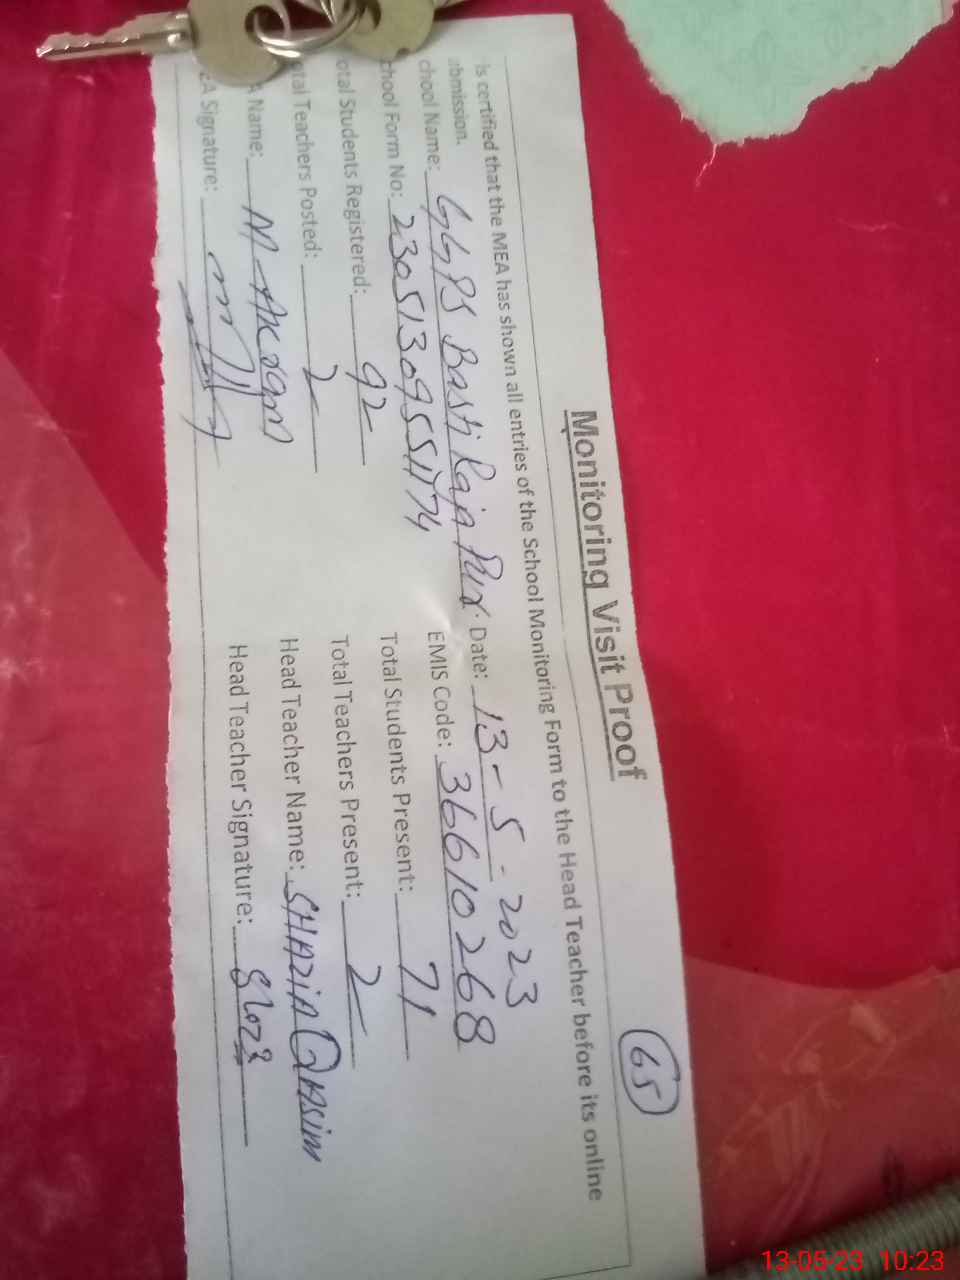 Monitoring Visit Proof
65
is certified that the MEA has shown all entries of the School Monitoring Form to the Head Teacher before its online
bmission.
chool Name: GGPS Basti Raja Pur. Date: 13-5-2023
chool Form No: 23051309551174 EMIS Code: 36610268
otal Students Registered: 92 Total Students Present: 71
otal Teachers Posted: 2 Total Teachers Present: 2
A Name: M Akram Head Teacher Name: SHAZIA QASIM
EA Signature: Head Teacher Signature:
13-05-23 10:23